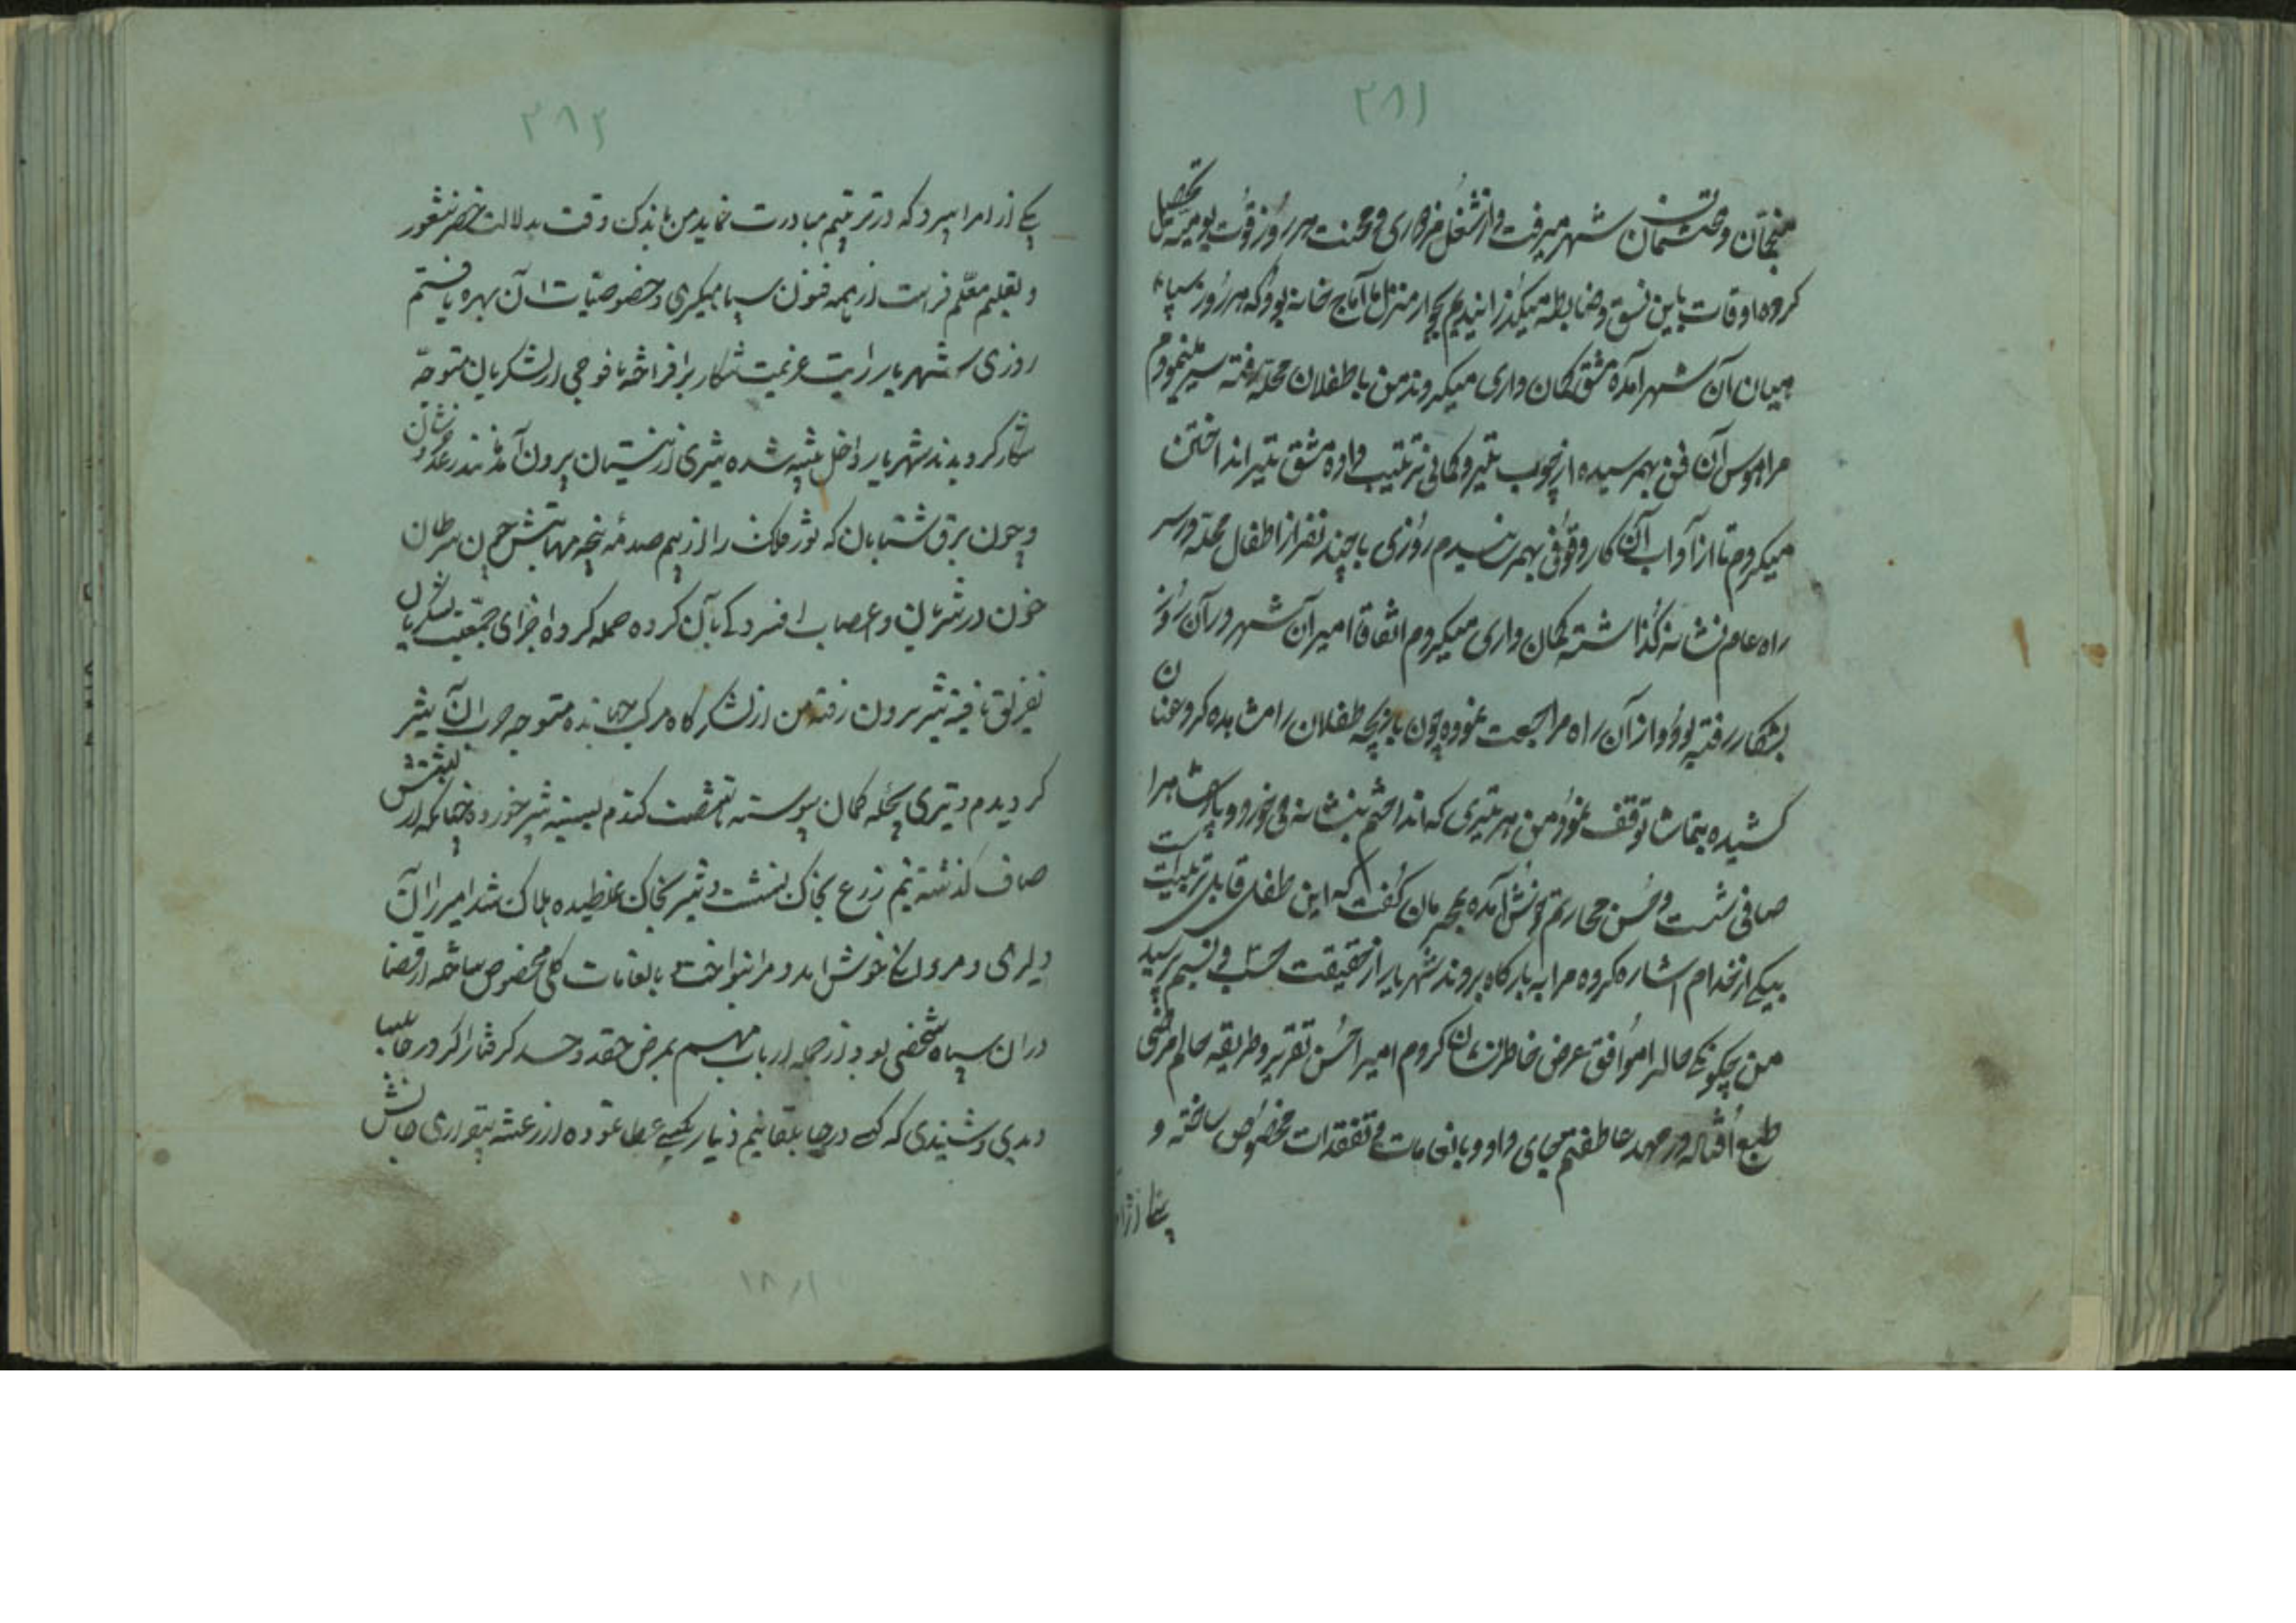 ۳۸۱
منعمان و محتشمان شهر میرفت و از شغل مزدوری و محنت هر روز قوت یومیه تحصیل
کرده اوقات باین نسق و ضابطه میگذرانیدیم بجوار منزل ما آماج خانه بود که هر روز سپاه
میان آن شهر آمده مشق کمان داری میکردند من با طفلان محله رفته سیر مینمودم
مرا هوس آن فن بهمرسیده از چوب تیر و کمانی ترتیب داده مشق تیر انداختن
میکردم تا از آداب آن کار وقوفی بهمرسانیدم روزی با چند نفر از اطفال محله در سر
راه عام نشانه گذاشته کمان داری میکردم اتفاقا امیر آن شهر در آن روز
بشکار رفته بود و از آن راه مراجعت نموده چون بازیچه طفلان را مشاهده کرد عنان
کشیده بتماشا توقف نمود من هر تیری که انداختم بنشانه می خورد و پادشاه مرا
صافی شست و حسن مجاریم خوش آمده بمحرمان گفت که این طفل قابل تربیت است
بیکی از خدام اشاره کرده مرا به بارگاه بردند شهریار از حقیقت حسب و نسبم پرسید
من چگونگی حال را موافق عرض خاطرنشان کردم امیر را حسن تقریر و طریقه حالم مرضی
طبع افتاده در مهد عاطفتم جای داد و بانعامات و تفقدات مخصوص ساخته و
۳۸۲
یکی از امرا سپرد که در تربیتم مبادرت نماید من باندک وقت بدلالت خضر شعور
و تعلیم معلم فراست از همه فنون سپاهیگری و خصوصیات آن بهره یافتم
روزی شهریار رایت عزیمت شکار برافراخته با فوجی از لشکریان متوجه
شکار گردیدند شهریار داخل بیشه شده شیری از نیستان بیرون آمد مانند رعد خروشان
و چون برق شتابان که ثور فلک را از بیم صدمه پنجه مهابتش چون سرطان
خون در شریان و اعصاب افسردگی بآن کرده حمله کرد و اجزای جمعیت لشکریان
تفریق یافته شیر بیرون رفته من از لشکرگاه مرکب جهانده متوجه حرب آن شیر
گردیدم و تیری بچله کمان پیوسته تا شست گشادم بسینه شیر خورده چنانکه از پشتش
صاف گذشته نیم زرع بخاک نشست و شیر بخاک غلطیده هلاک شد امیر را آن
دلیری و مردانگی خوش آمد و مرا بنواخت بانعامات کلی مخصوص ساخته از قضا
در آن سپاه شخصی بود از جمله ارباب مهم بمرض حقد و حسد گرفتار اگر در جانب
دیدی و شنیدی که کسی در جا بلقا نیم دینار بکسی عطا نموده از رعشه بیقراری جانش